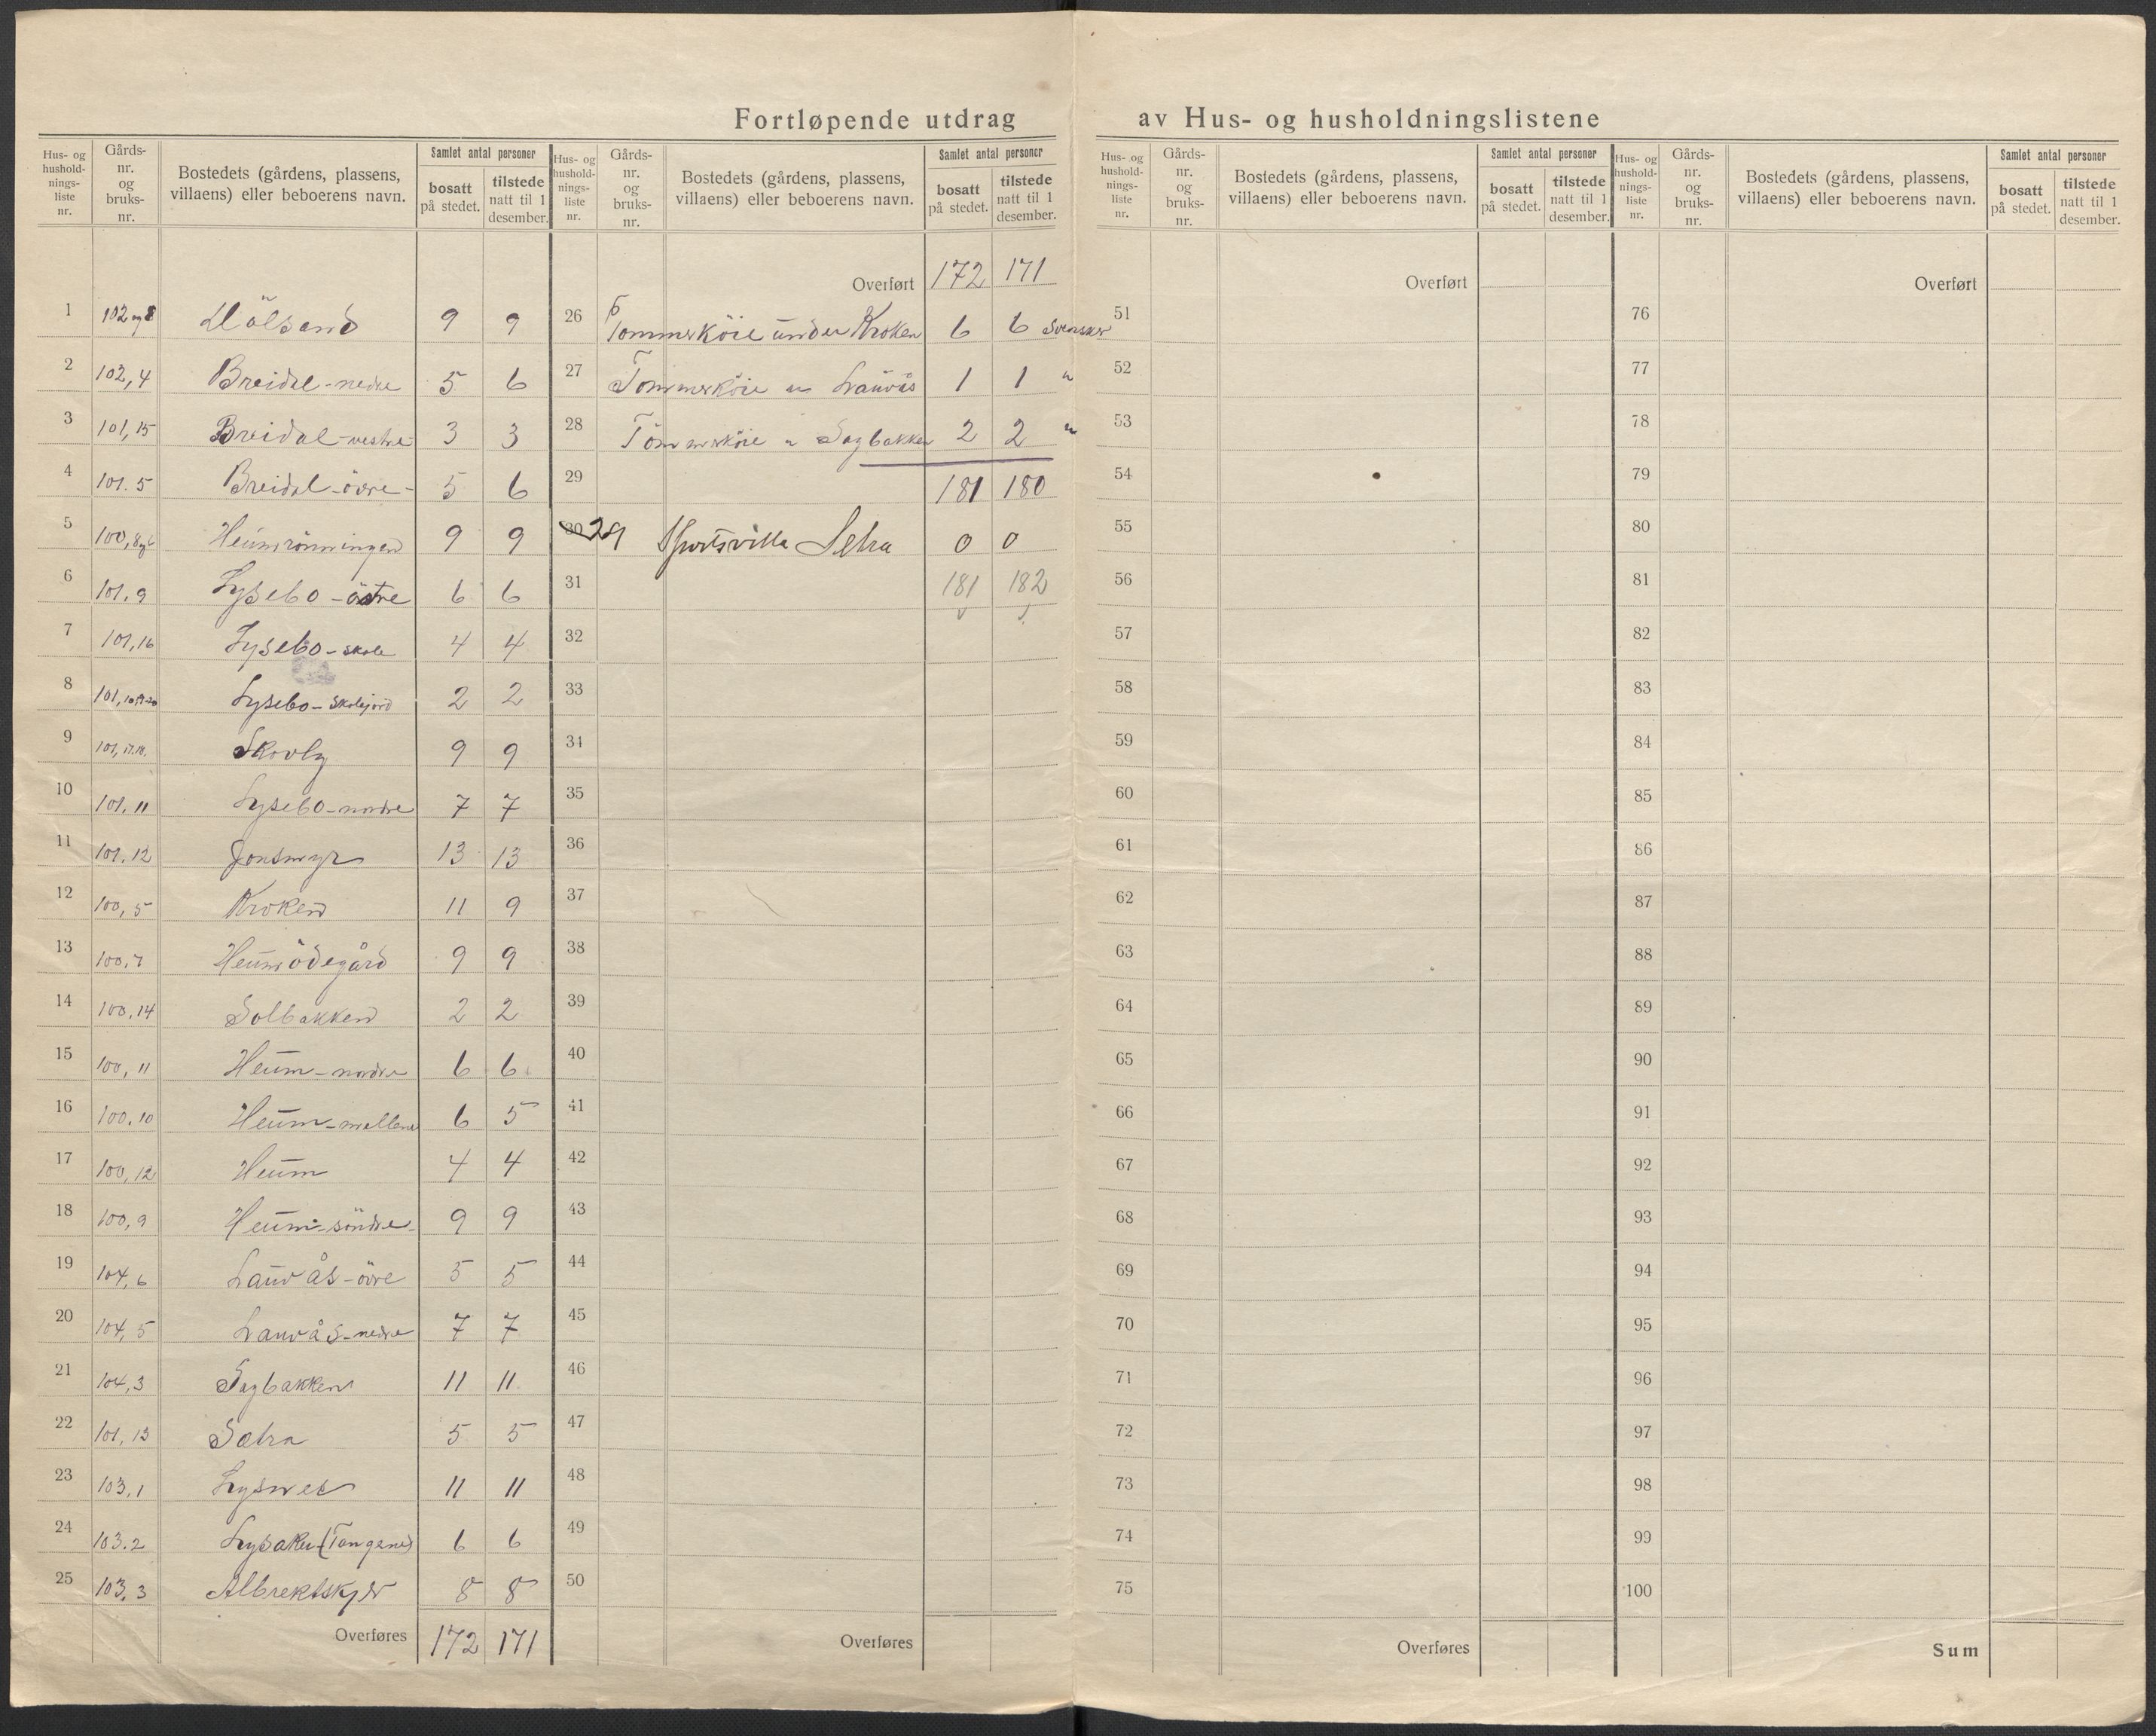 Fortløpende utdrag av Hus- og husholdningslistene
Hus- og hushold-nings-liste nr. | Gårds-nr. og bruks-nr. | Bostedets (gårdens, plassens, villaens) eller beboerens navn. | Samlet antal personer | bosatt på stedet. | tilstede natt til 1 desember.
1 102 og 8 9 9
2 102,4 Breidal-nedre 5 6
3 101,15 Breidal-vestre 3 3
4 101.5 Breidal-övre 5 6
5 100, Heumrönningen 9 9
6 101.9 Lysebo-östre 6 6
7 101,16 Lysebo-skole 4 4
8 101, Lysebo-skolejord 2 2
9 101,17.18. Skovly 9 9
10 101,11 Lysebo-nordre 7 7
11 101,12 Jonsmyr 13 13
12 100,5 Kroken 11 9
13 100,7 Heumödegård 9 9
14 100,14 Solbakken 2 2
15 100,11 Heum-nordre 6 6
16 100.10 Heum-mellem 6 5
17 100,12 Heum 4 4
18 100,9 Heum-söndre 9 9
19 104,6 Lauvås-övre 5 5
20 104,5 Lauvås-nedre 7 7
21 104,3 Sagbakken 11 11
22 101,13 Sætra 5 5
23 103.1 Lysnes 11 11
24 103.2 (Tangene) 6 6
25 103.3 8 8
Overføres 172 171
Hus- og hushold-nings-liste nr. | Gårds-nr. og bruks-nr. | Bostedets (gårdens, plassens, villaens) eller beboerens navn. | Samlet antal personer | bosatt på stedet. | tilstede natt til 1 desember.
Overført 172 171
26 Tömmerköie under Kroken 6 6 Svensker
27 Tömmerköie " Lauvås 1 1 "
28 Tömmerköie " Sagbakken 2 2 "
29 181 180
30 29 Sportsvilla Setra 0 0
31 181 182
32
33
34
35
36
37
38
39
40
41
42
43
44
45
46
47
48
49
50
Overføres
Hus- og hushold-nings-liste nr. | Gårds-nr. og bruks-nr. | Bostedets (gårdens, plassens, villaens) eller beboerens navn. | Samlet antal personer | bosatt på stedet. | tilstede natt til 1 desember.
Overført
51
52
53
54
55
56
57
58
59
60
61
62
63
64
65
66
67
68
69
70
71
72
73
74
75
Overføres
Hus- og hushold-nings-liste nr. | Gårds-nr. og bruks-nr. | Bostedets (gårdens, plassens, villaens) eller beboerens navn. | Samlet antal personer | bosatt på stedet. | tilstede natt til 1 desember.
Overført
76
77
78
79
80
81
82
83
84
85
86
87
88
89
90
91
92
93
94
95
96
97
98
99
100
Sum